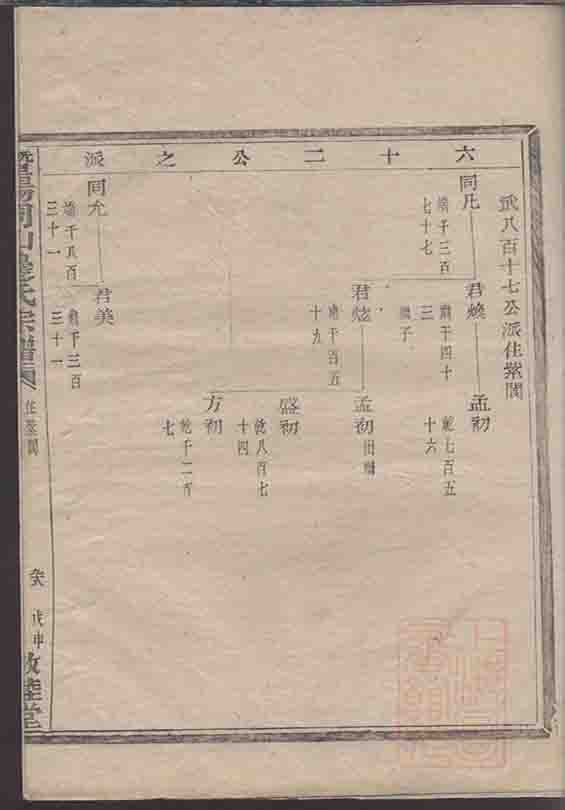 六十二公之派
武八百十七公派住紫閬
同凡
端千三百
七十七
君煥
肅千四十
三
孟初
乾七百五
十六
繼子
君炫
肅千百五
十九
孟初
出繼
盛初
乾八百七
十四
方初
乾千二百
七
同允
端千八百
三十一
君美
肅千三百
三十一
氏宗譜
住紫閬
戊申
敦睦堂